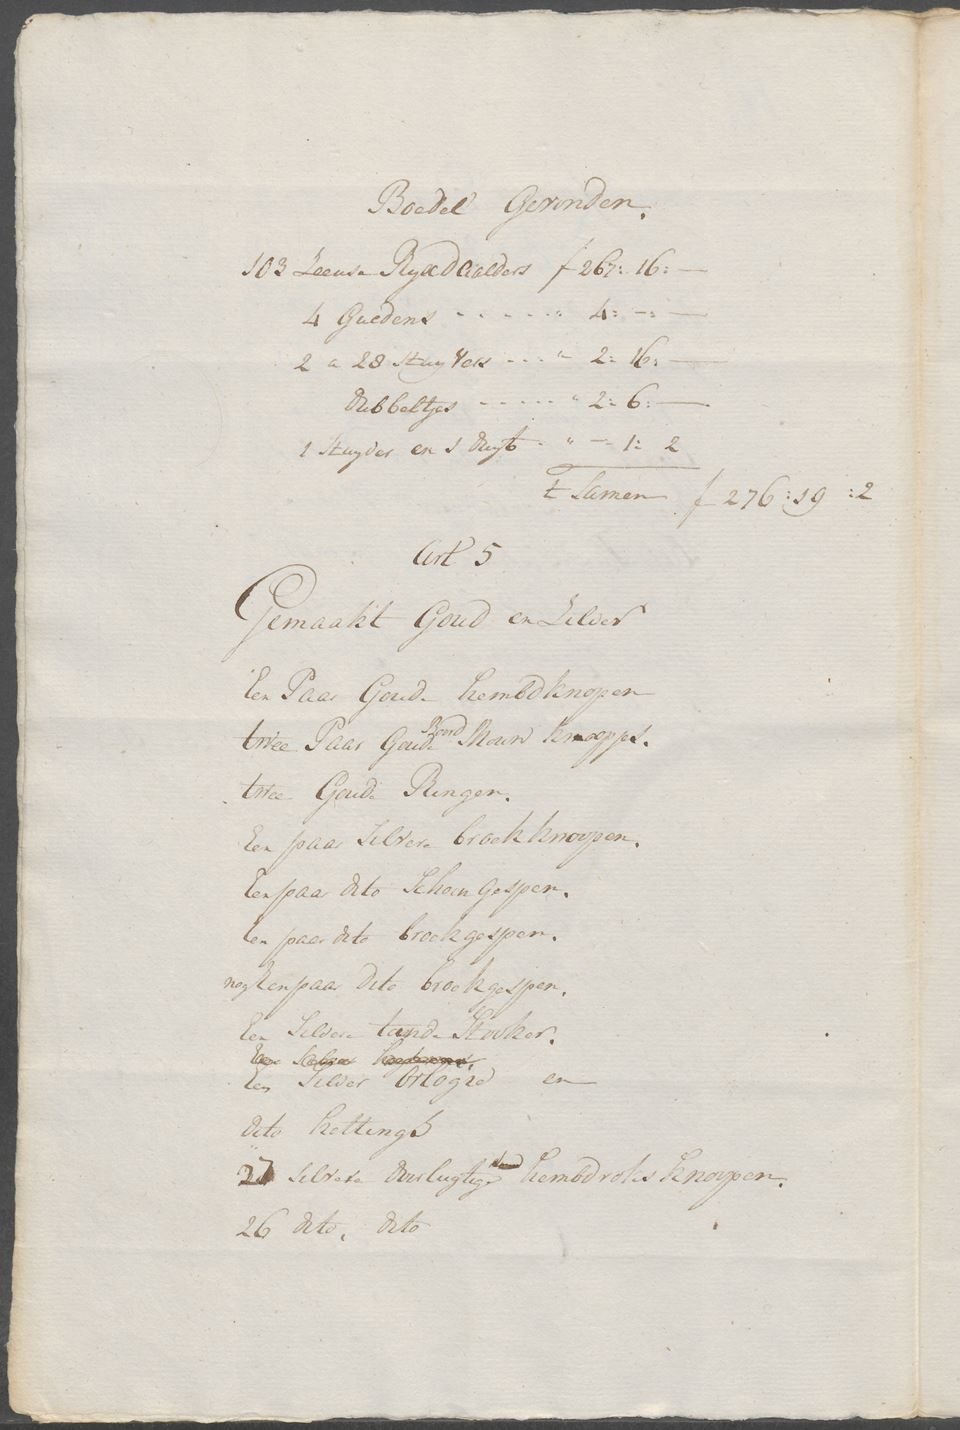 Boedel Gevonden.
103 Zeeuse Ryxdaalders f 267: 16: —
4 Guldens - - - - - " 4: -: —
2 a 28 Stuyvers - - - " 2: 16: —
Dubbeltjes - - - - - " 2: 6: —
1 Stuyver en 1 duyt - " — 1: 2
t Samen f 276 : 19 : 2
Art 5
Gemaakt Goud en Zilver
Een Paar Goude hembdknopen
twee Paar Goude Boord Mouw knoopjes.
twee Goude Ringen.
Een paar Silvere broek knoopen.
Een paar dito Schoen gespen.
Een paar dito broek gespen.
nog Een paar dito broek gespen.
Een Silvere tande Stooker.
Een Silver
Een Silver orlogie en
dito kettingh
27 silvere doorlugtige hembdroks knoopen.
26 dito, dito